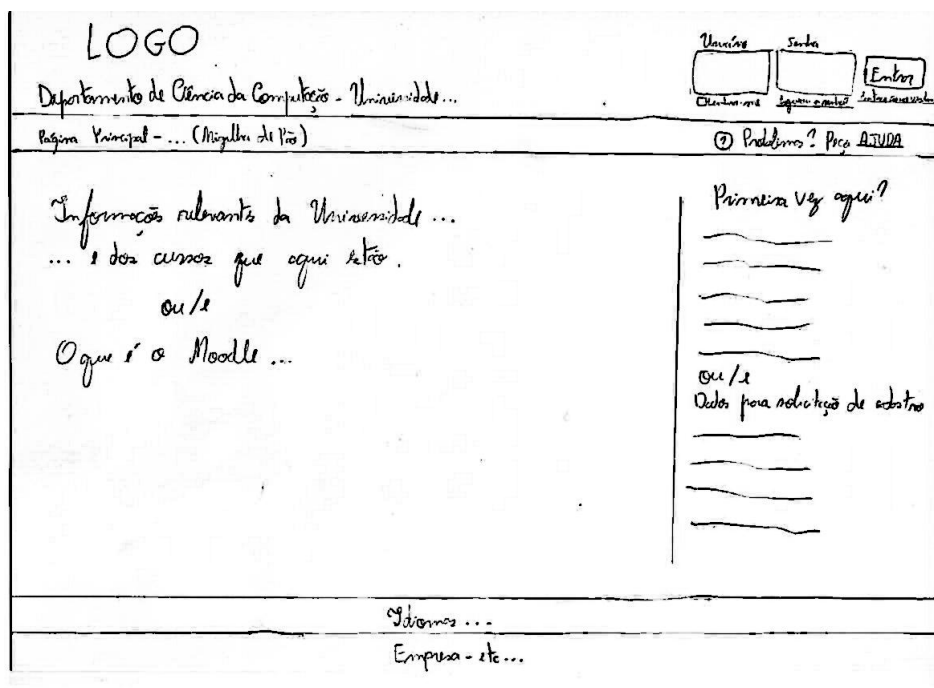 LOGO
Departamento de Ciência da Computação - Universidade...
Usuário Senha
Entrar
Lembrar-me Esqueceu a senha? Entrar como visitante
Página Principal - ... (Migalha de Pão)
? Problemas? Peça AJUDA
Informações relevants da Universidade ...
... e dos cursos que aqui estão.
ou/e
O que é o Moodle ...
Primeira vez aqui?
ou/e
Dados para solicitação de cadastro
Idiomas ...
Empresa - etc...